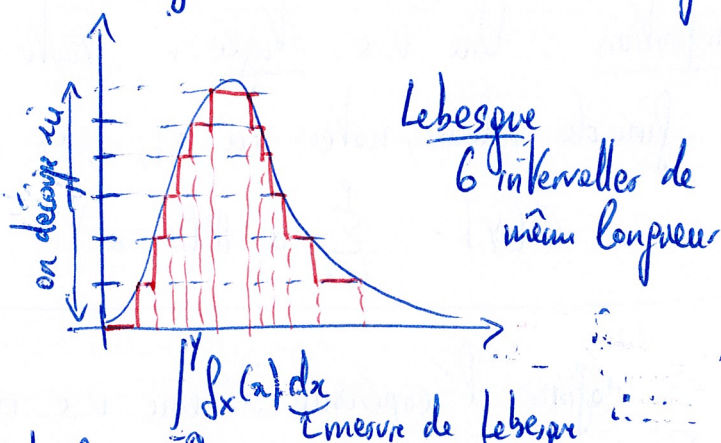 on découpe ici
Lebesgue
6 intervalles de
même longueur
∫ f_X(x) dx
mesure de Lebesgue